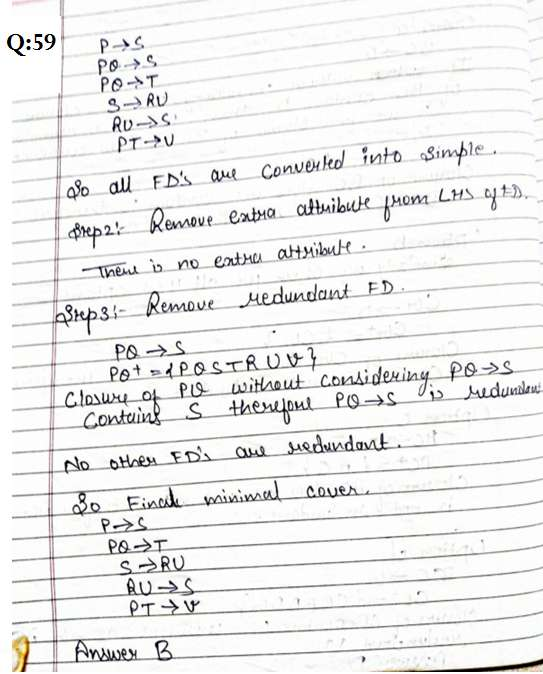 Q:59
P→S
PQ→S
PQ→T
S→RU
RU→S
PT→U
So all FD's are converted into simple.
Step2:- Remove extra attribute from LHS of FD.
There is no extra attribute.
Step3:- Remove redundant FD.
PQ→S
PQ+ = {PQSTRUV}
Closure of PQ without considering PQ→S
Contains S therefore PQ→S is redundant
No other FD's are redundant.
So Final minimal cover.
P→S
PQ→T
S→RU
RU→S
PT→V
Answer B